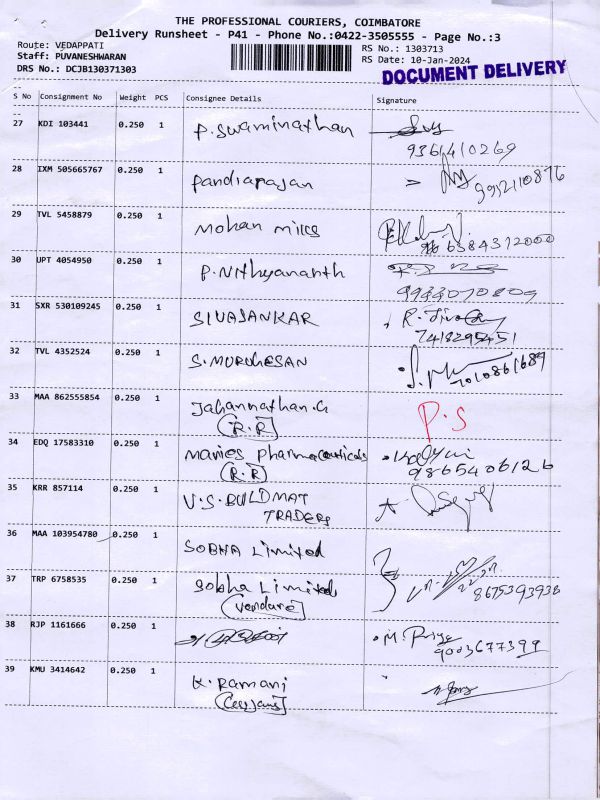 THE PROFESSIONAL COURIERS, COIMBATORE
Delivery Runsheet - P41 - Phone No.:0422-3505555 - Page No.:3
Route: VEDAPPATI
Staff: PUVANESHWARAN
DRS No.: DCJB130371303
RS No.: 1303713
RS Date: 10-Jan-2024
DOCUMENT DELIVERY
S No Consignment No Weight PCS Consignee Details Signature
27 KDI 103441 0.250 1 P.Swaminathan
9361410269
28 IXM 505665767 0.250 1 Pandiarajan
29 TVL 5458879 0.250 1 Mohan mills
6384312000
30 UPT 4054950 0.250 1 P.Nithyananth
9933070809
31 SXR 530109245 0.250 1 SIVASANKAR
7418295451
32 TVL 4352524 0.250 1 S.MURUGESAN
7010861689
33 MAA 862555854 0.250 1 Jagannathan.G P.S
(R.R)
34 EDQ 17583310 0.250 1 Mavies Pharmaceuticals
(R.R) 9865406126
35 KRR 857114 0.250 1 V.S.BUILDMAT
TRADERS
36 MAA 103954780 0.250 1 SOBHA Limited
37 TRP 6758535 0.250 1 Sobha Limited
8675393936
38 RJP 1161666 0.250 1 M. Priya
9003677399
39 KMU 3414642 0.250 1 K. Ramani